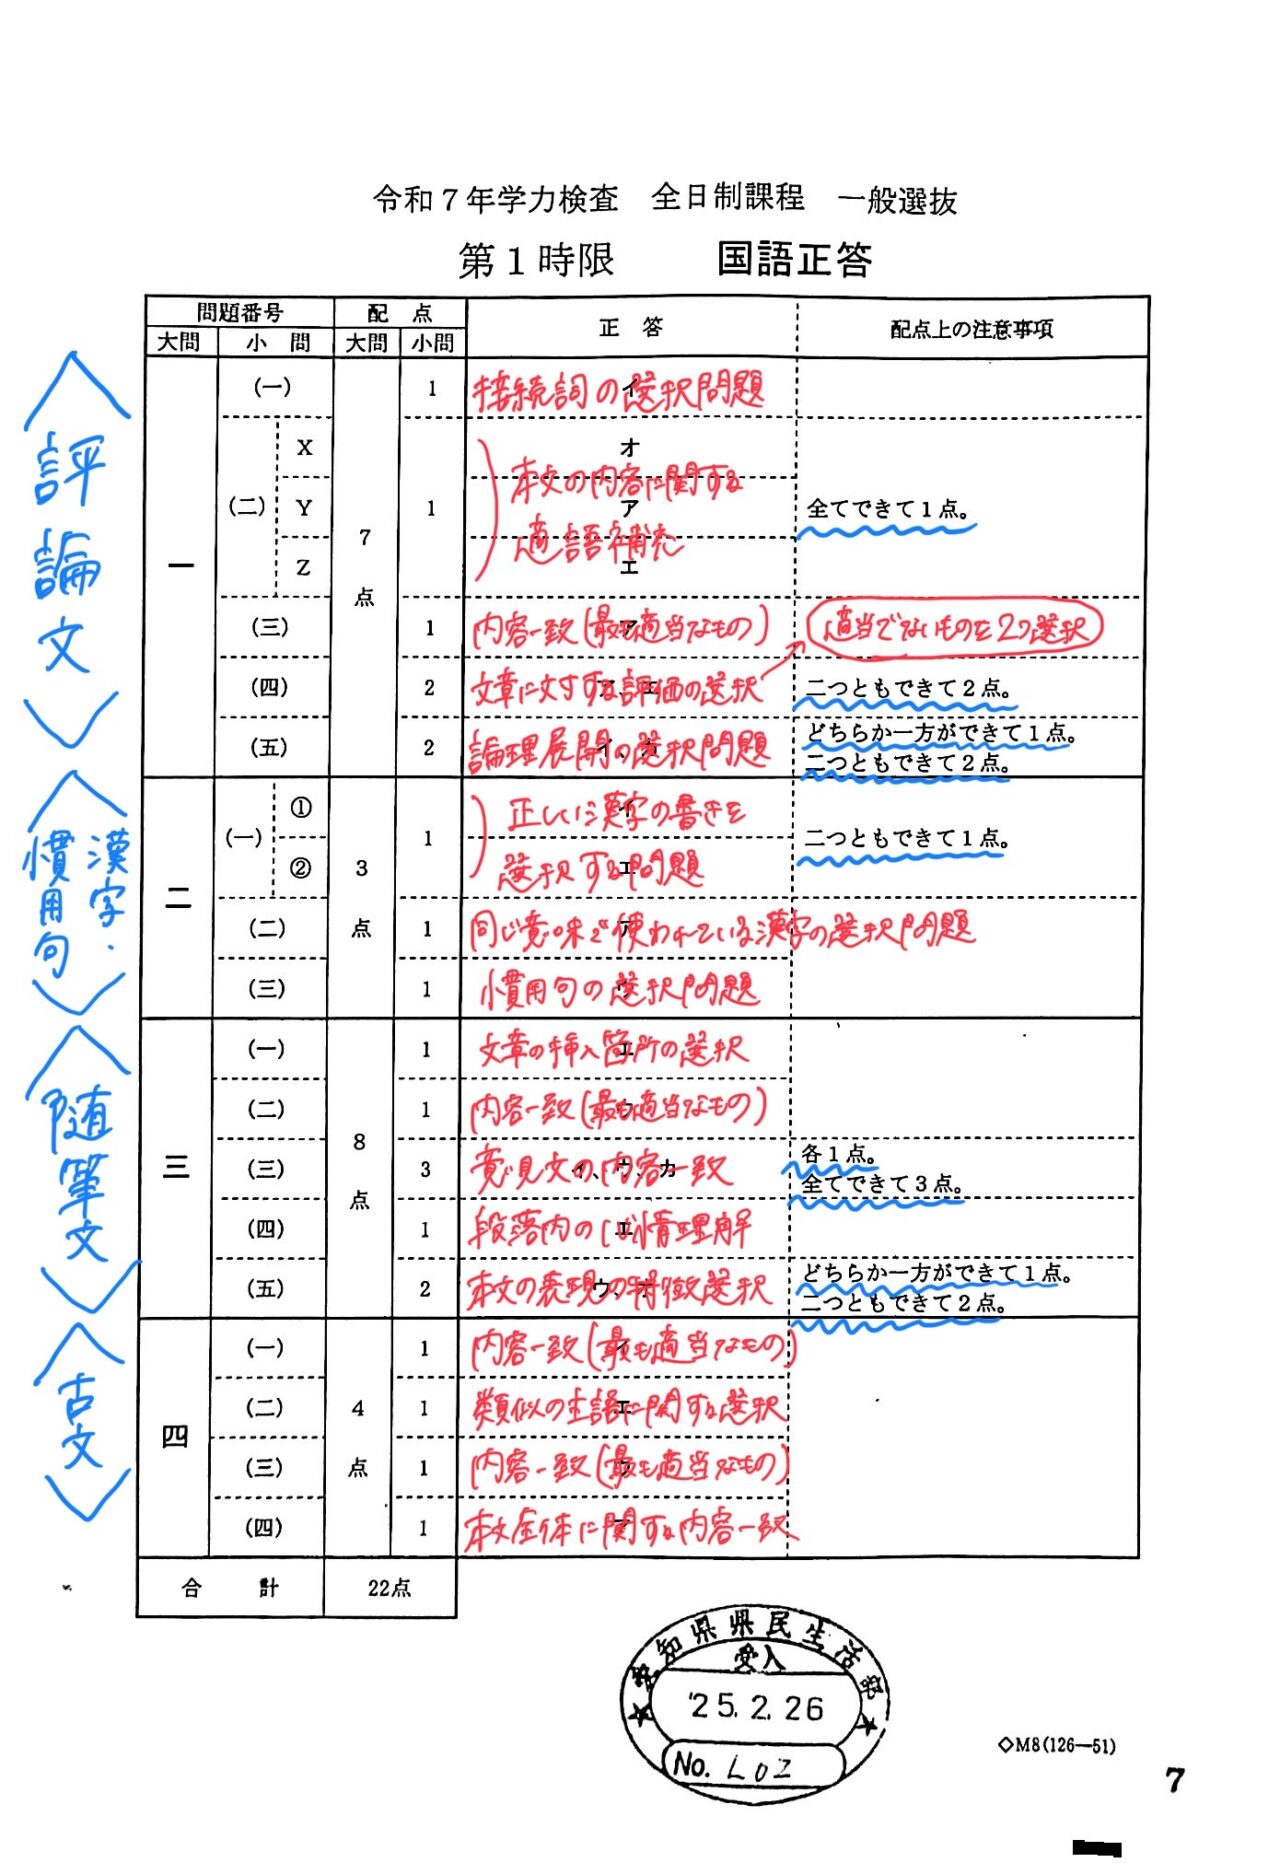 令和7年学力検査　全日制課程　一般選抜
第1時限　国語正答
問題番号　配点　正答　配点上の注意事項
大問　小問　大問　小問
〈評論文〉
一　7点
(一)　1　接続詞の選択問題
(二)　X　オ
Y　ア　1　全てできて1点。
Z　エ
本文の内容に関する
適語補充
(三)　1　内容一致(最も適当なもの)　ア
適当でないものを2つ選択
(四)　2　文章に対する評価の選択　二つともできて2点。
(五)　2　論理展開の選択問題　どちらか一方ができて1点。
二つともできて2点。
〈漢字・慣用句〉
二　3点
(一)　①　1　正しい漢字の書きを　二つともできて1点。
②　選択する問題　エ
(二)　1　同じ意味で使われている漢字の選択問題　ア
(三)　1　慣用句の選択問題
〈随筆文〉
三　8点
(一)　1　文章の挿入箇所の選択　エ
(二)　1　内容一致(最も適当なもの)
(三)　3　意見文の内容一致　イ、ウ、カ　各1点。
全てできて3点。
(四)　1　段落内の心情理解　エ
(五)　2　本文の表現の特徴選択　どちらか一方ができて1点。
二つともできて2点。
〈古文〉
四　4点
(一)　1　内容一致(最も適当なもの)　イ
(二)　1　類似の主語に関する選択　エ
(三)　1　内容一致(最も適当なもの)
(四)　1　本文全体に関する内容一致
合計　22点
愛知県県民生活部
受入
'25.2.26
No. L02
◇M8(126—51)
7